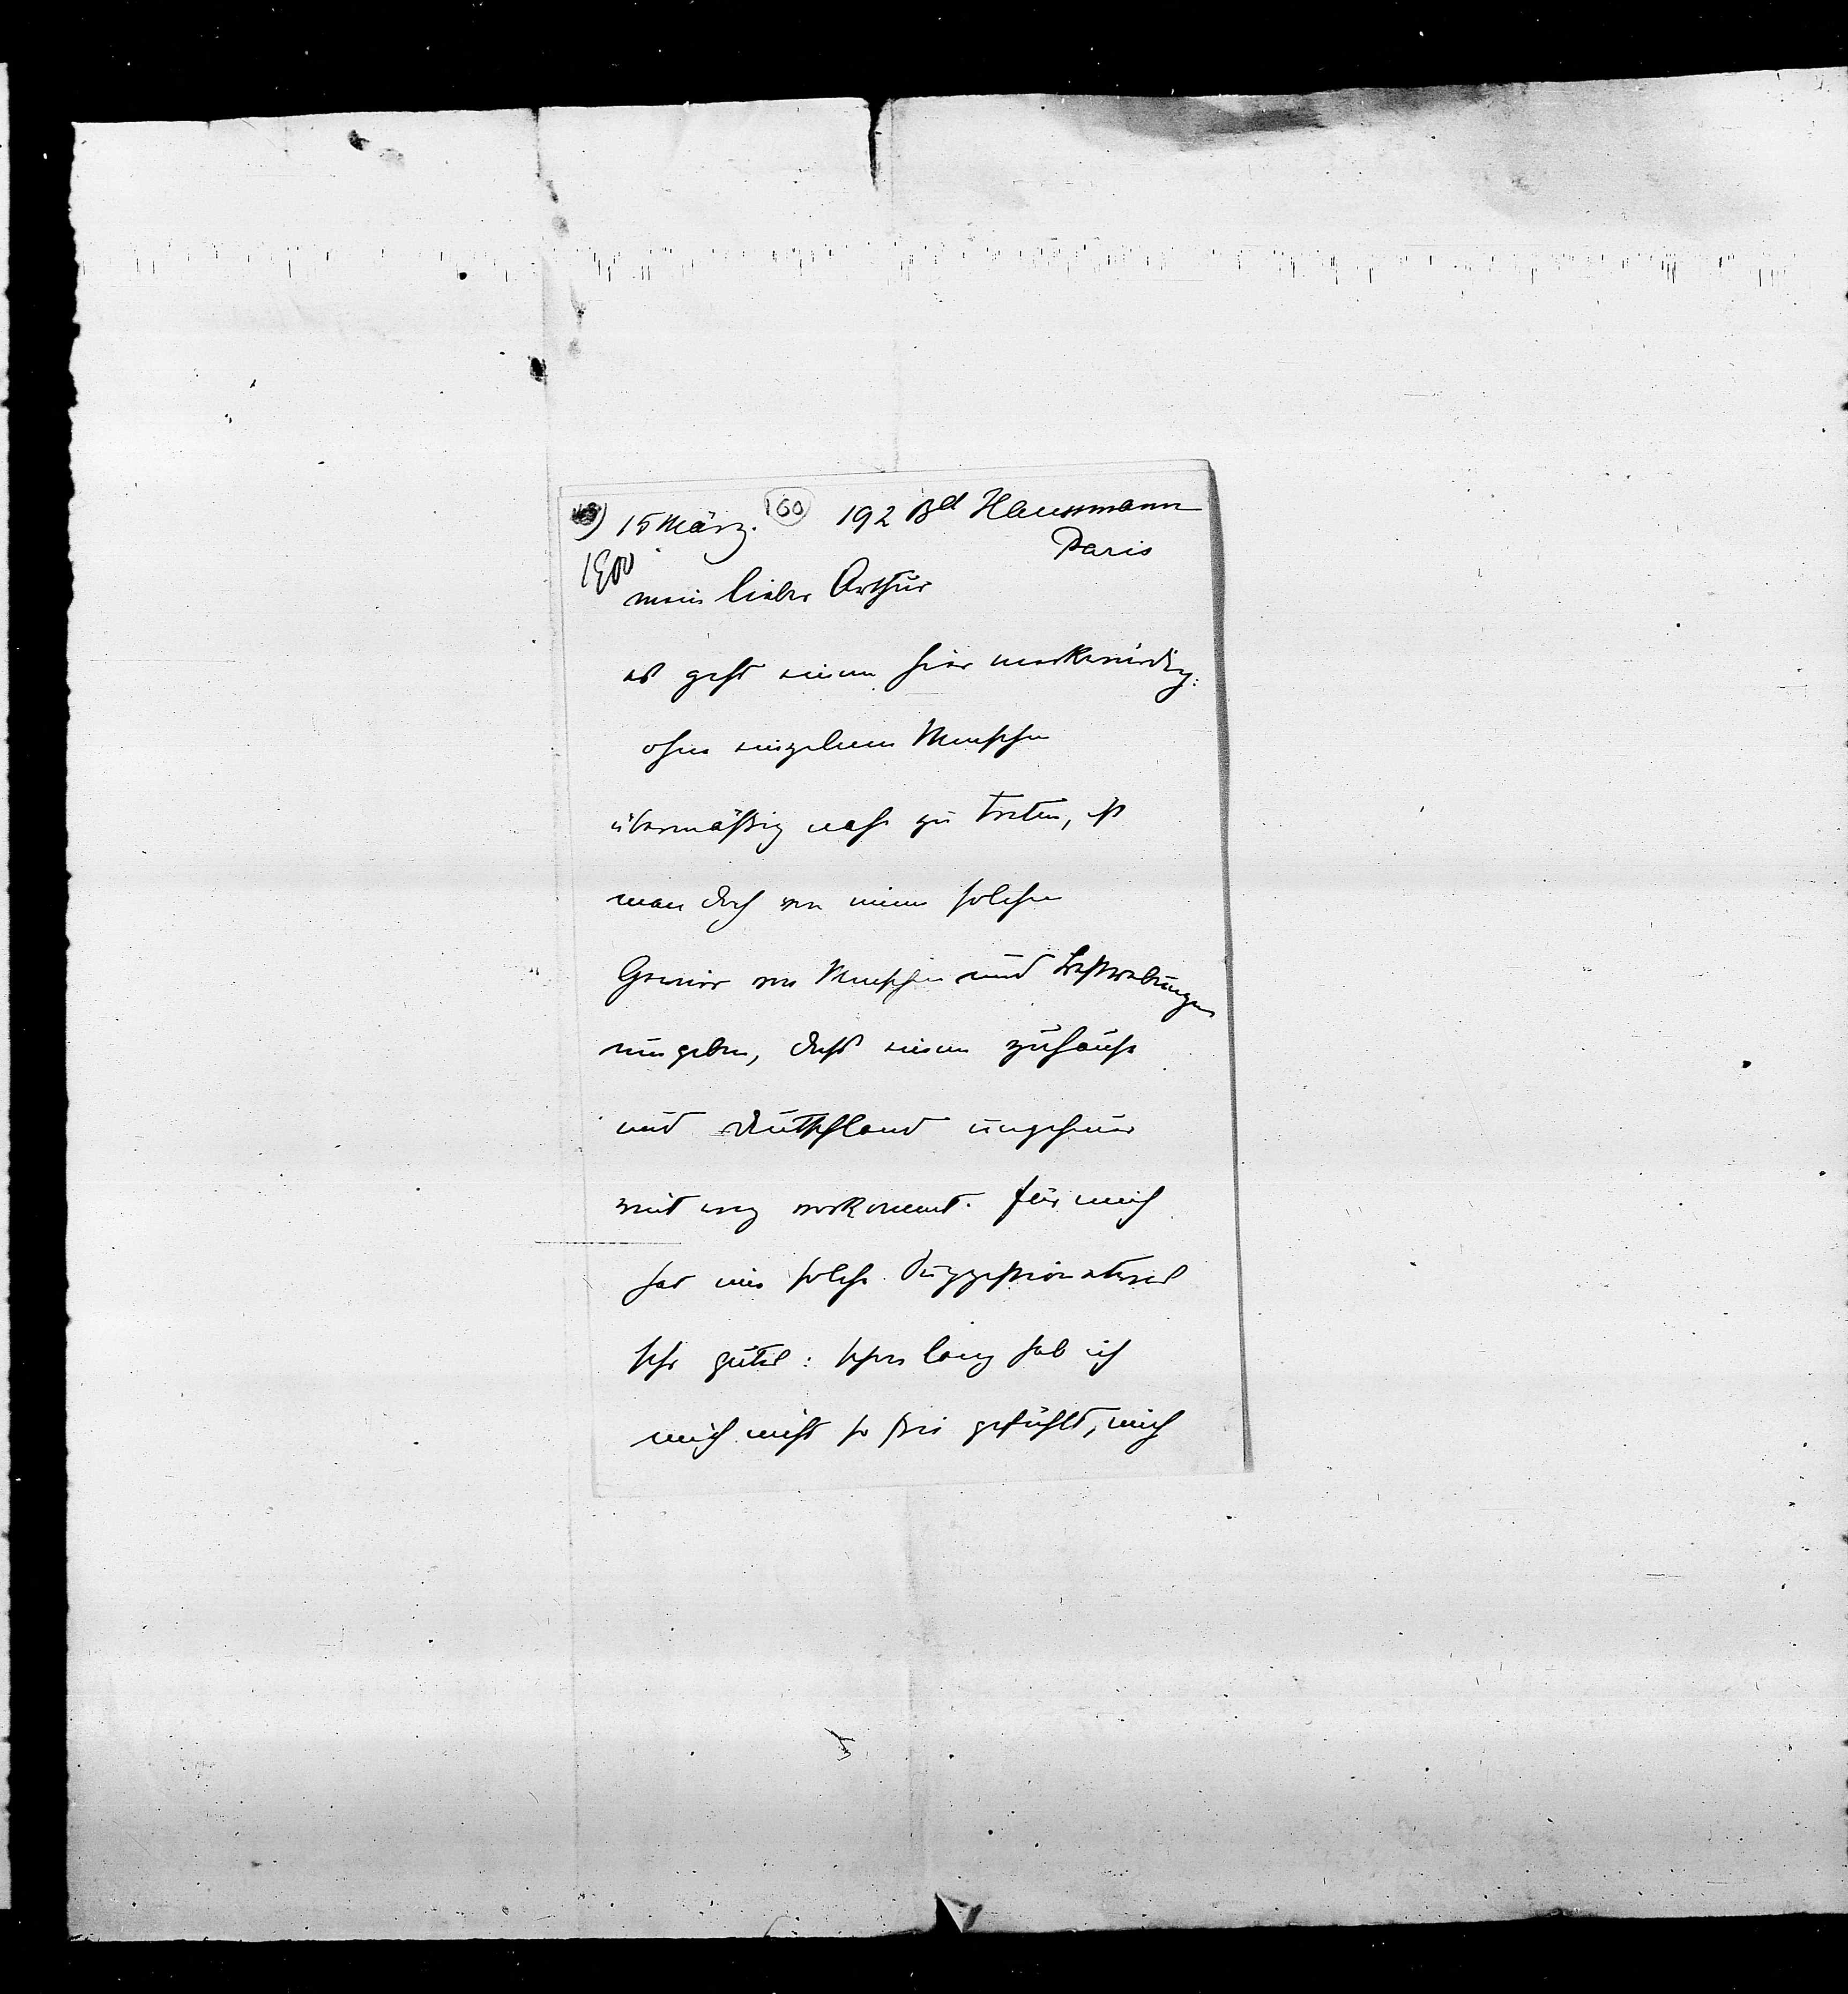 15 März. 60 192 Bd Haussmann
Paris
1900
mein lieber Arthur
es geht einem hier merkwürdig:
ohne einzelnen Menschen
übermäßig nahe zu treten, ist
man doch von einem solchen
Gewirr von Menschen und Bestrebungen
umgeben, dass einem zuhause
und Deutschland ungeheuer
weit weg vorkommt. für mich
hat eine solche etwas
sehr gutes: schon lang hab ich
mich nicht so frei gefühlt, mich